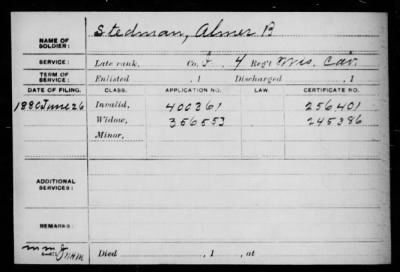 NAME OF SOLDIER: Stedman, Almer B
SERVICE: Late rank, Co. F. 4 Reg't Wis. Cav.
TERM OF SERVICE: Enlisted , 1 Discharged , 1
DATE OF FILING. CLASS. APPLICATION NO. LAW. CERTIFICATE NO.
1880 June 26 Invalid, 400361 256.401
Widow, 356553 245386
Minor,
ADDITIONAL SERVICES:
REMARKS:
Died , 1 , at